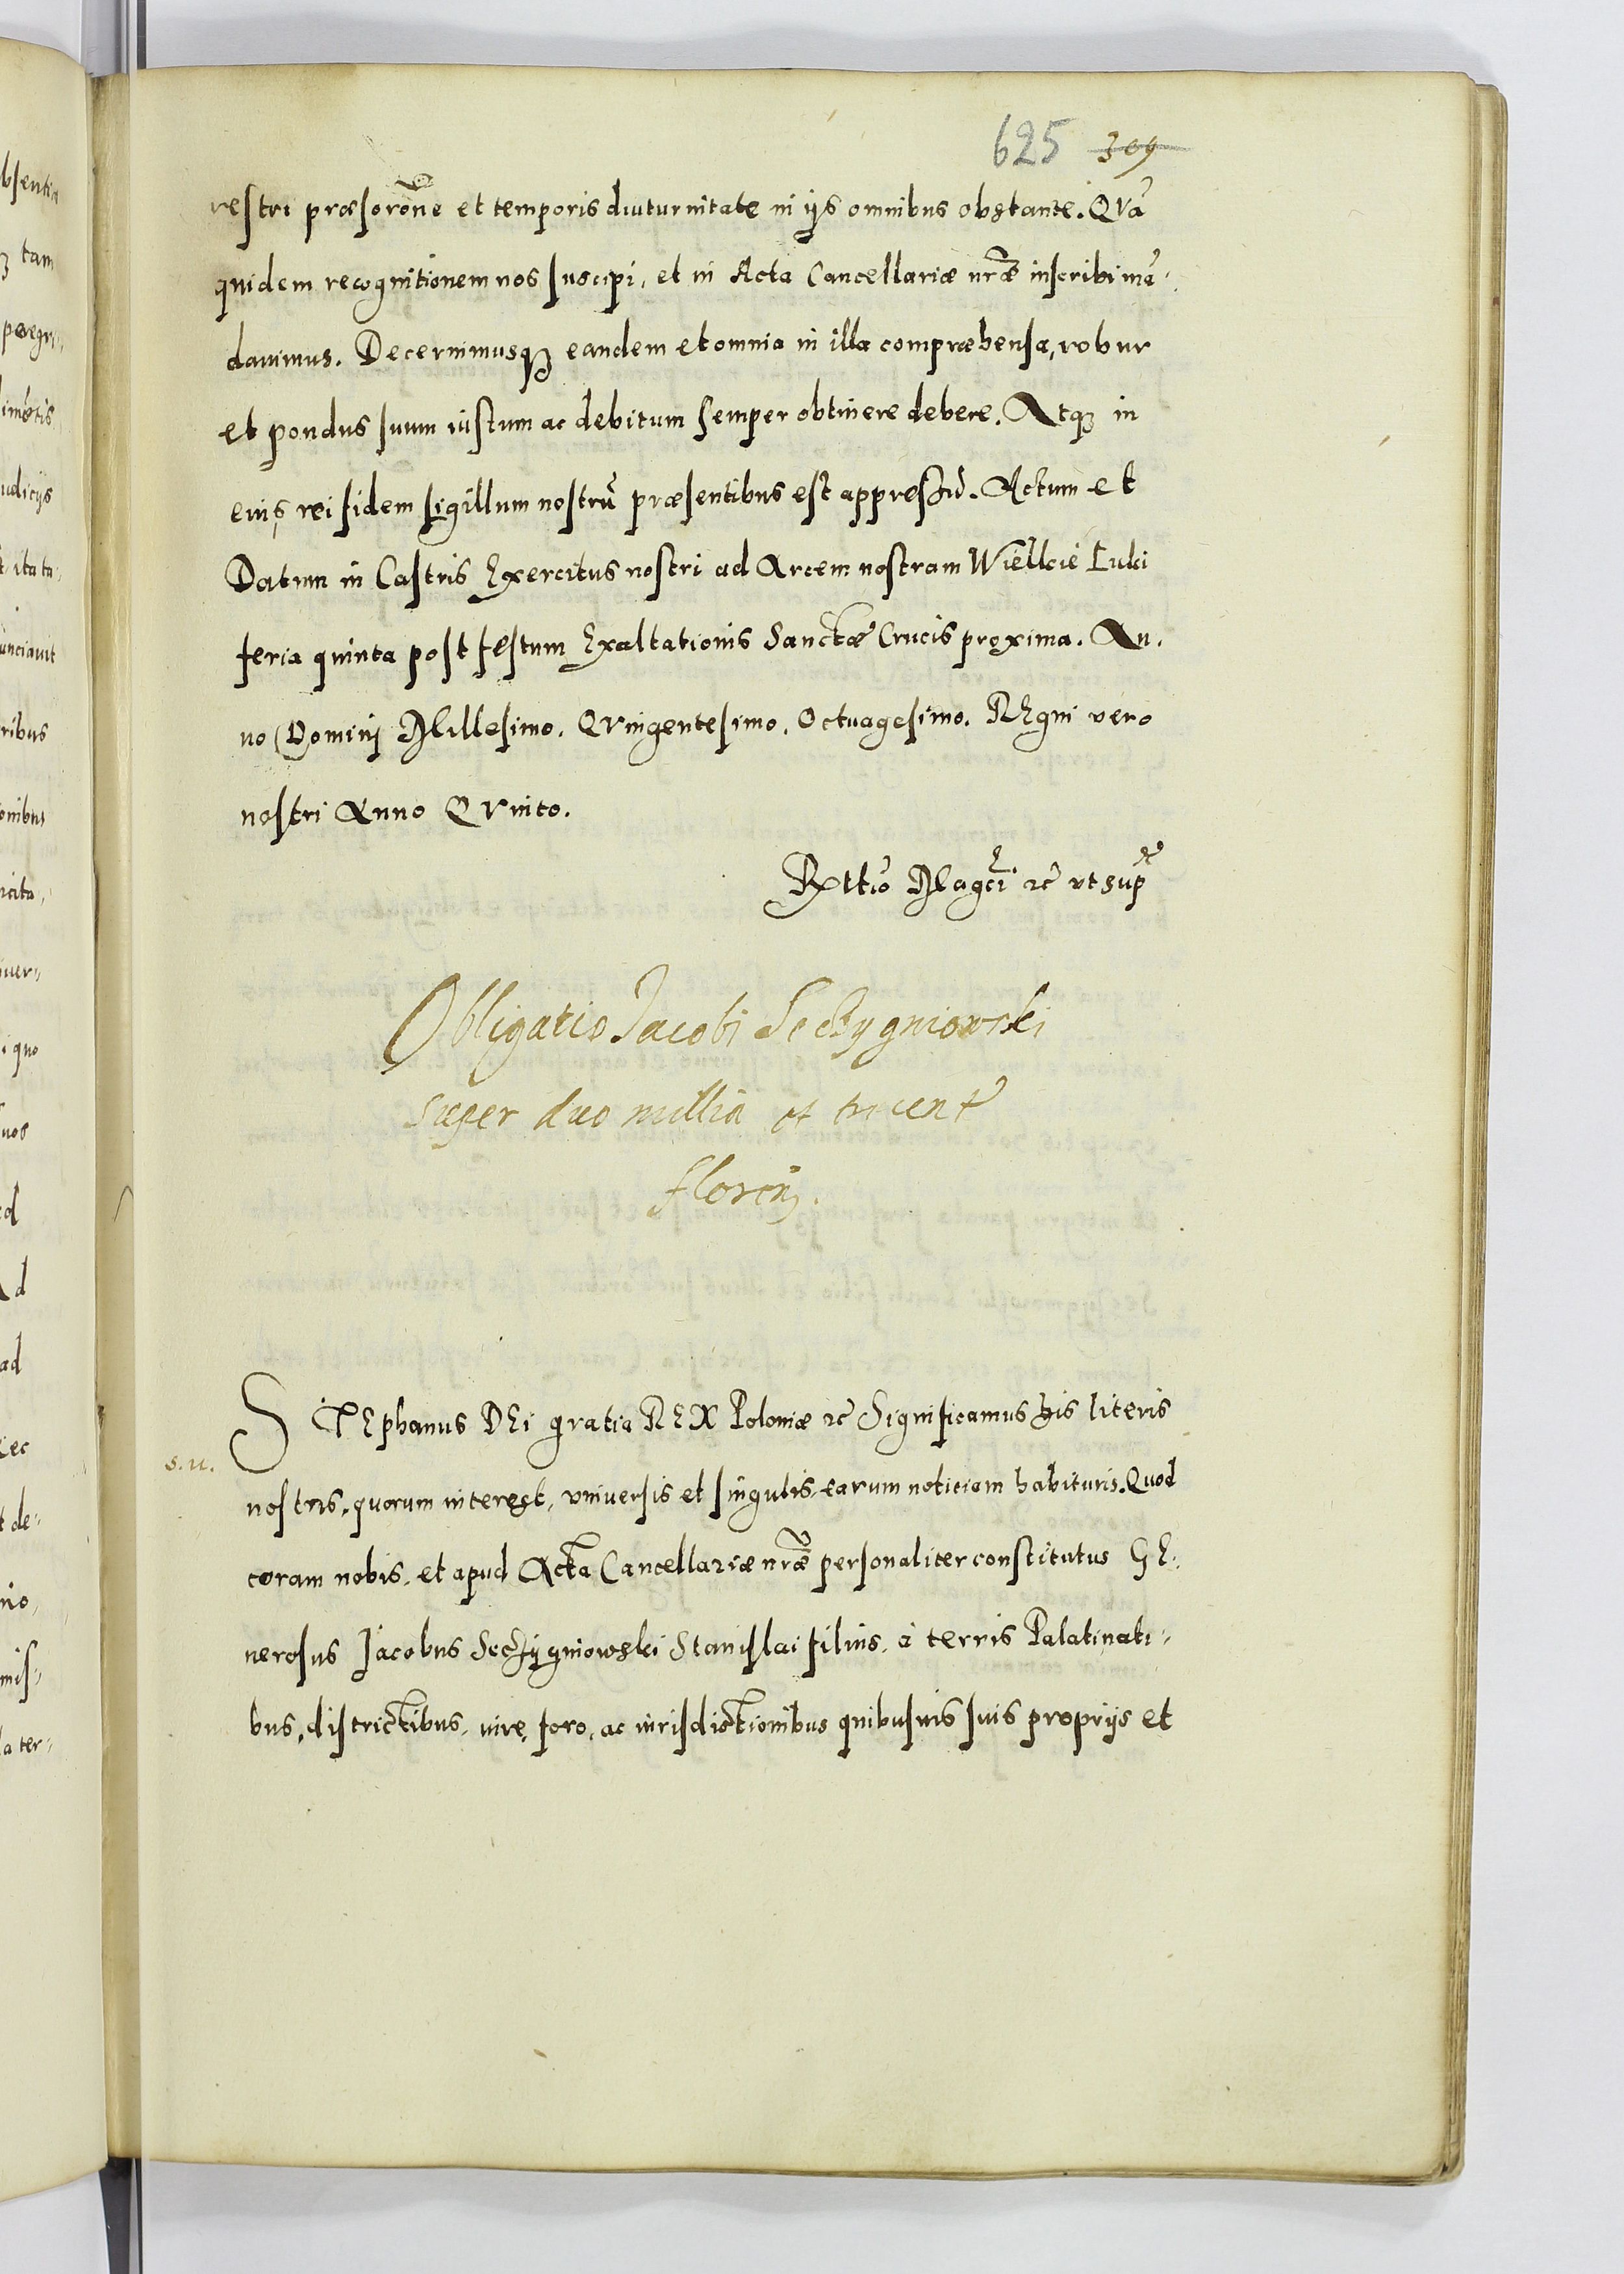 625 309
restri præscrõne et temporis diuturnitate in ijs omnibus obstante. QVã
quidem recognitionem nos suscipi, et in Acta Cancellariæ nrãe inscribi mã-
dauimus. Decernimusqȝ eandem et omnia in illa compræhensa, robur
et pondus suum iustum ac debitum semper obtinere debere. Atqȝ in
eius rei fidem sigillum nostrũ præsentibus est appressũ. Actum et
Datum in Castris Exercitus nostri ad Arcem nostram Wielkie Luki
feria quinta post festum Exaltationis Sanctæ Crucis proxima. An-
no Domini Millesimo. QVingentesimo. Octuagesimo. REgni vero
nostri Anno QVinto.
Rttio Magci ꝛc̃ vt sup
Obligatio Jacobi Seczygniowski
super duo millia et tricent
floren.
STEphanus DEi gratia REX Poloniæ ꝛc̃ Significamus his literis
s. u.
nostris, quorum interest, vniuersis et singulis, earum noticiam habituris. Quod
coram nobis, et apud Acta Cancellariæ nrãe personaliter constitutus GE-
nerosus Jacobus Seczygniowski Stanislai filius, à terris Palatinati-
bus, districtibus, iure, foro, ac iurisdictionibus quibusuis suis proprijs et